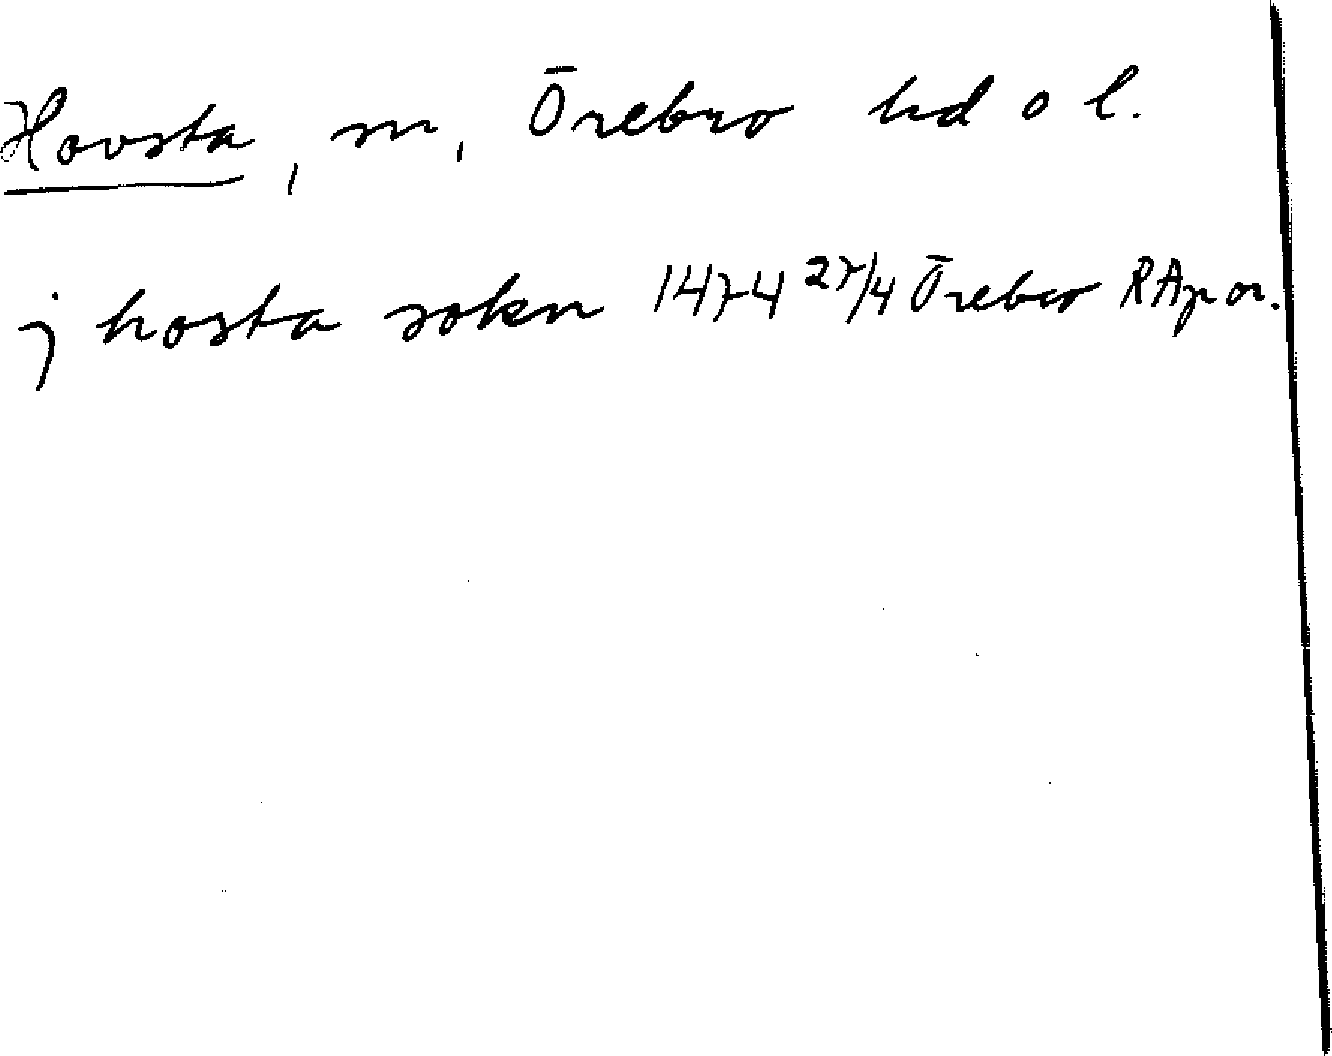 Hovsta, sn, Örebro hd o l.
j hosta sokn 1474 27/4 Örebro RAp or.